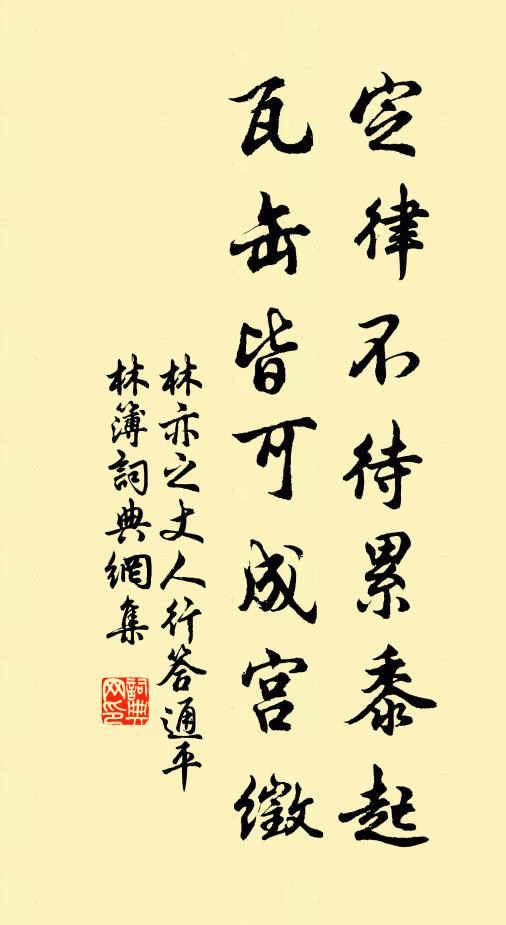 定律不待累黍起
瓦缶皆可成宫徵
林亦之丈人行答通平
林簿詞典網集
詞典网印